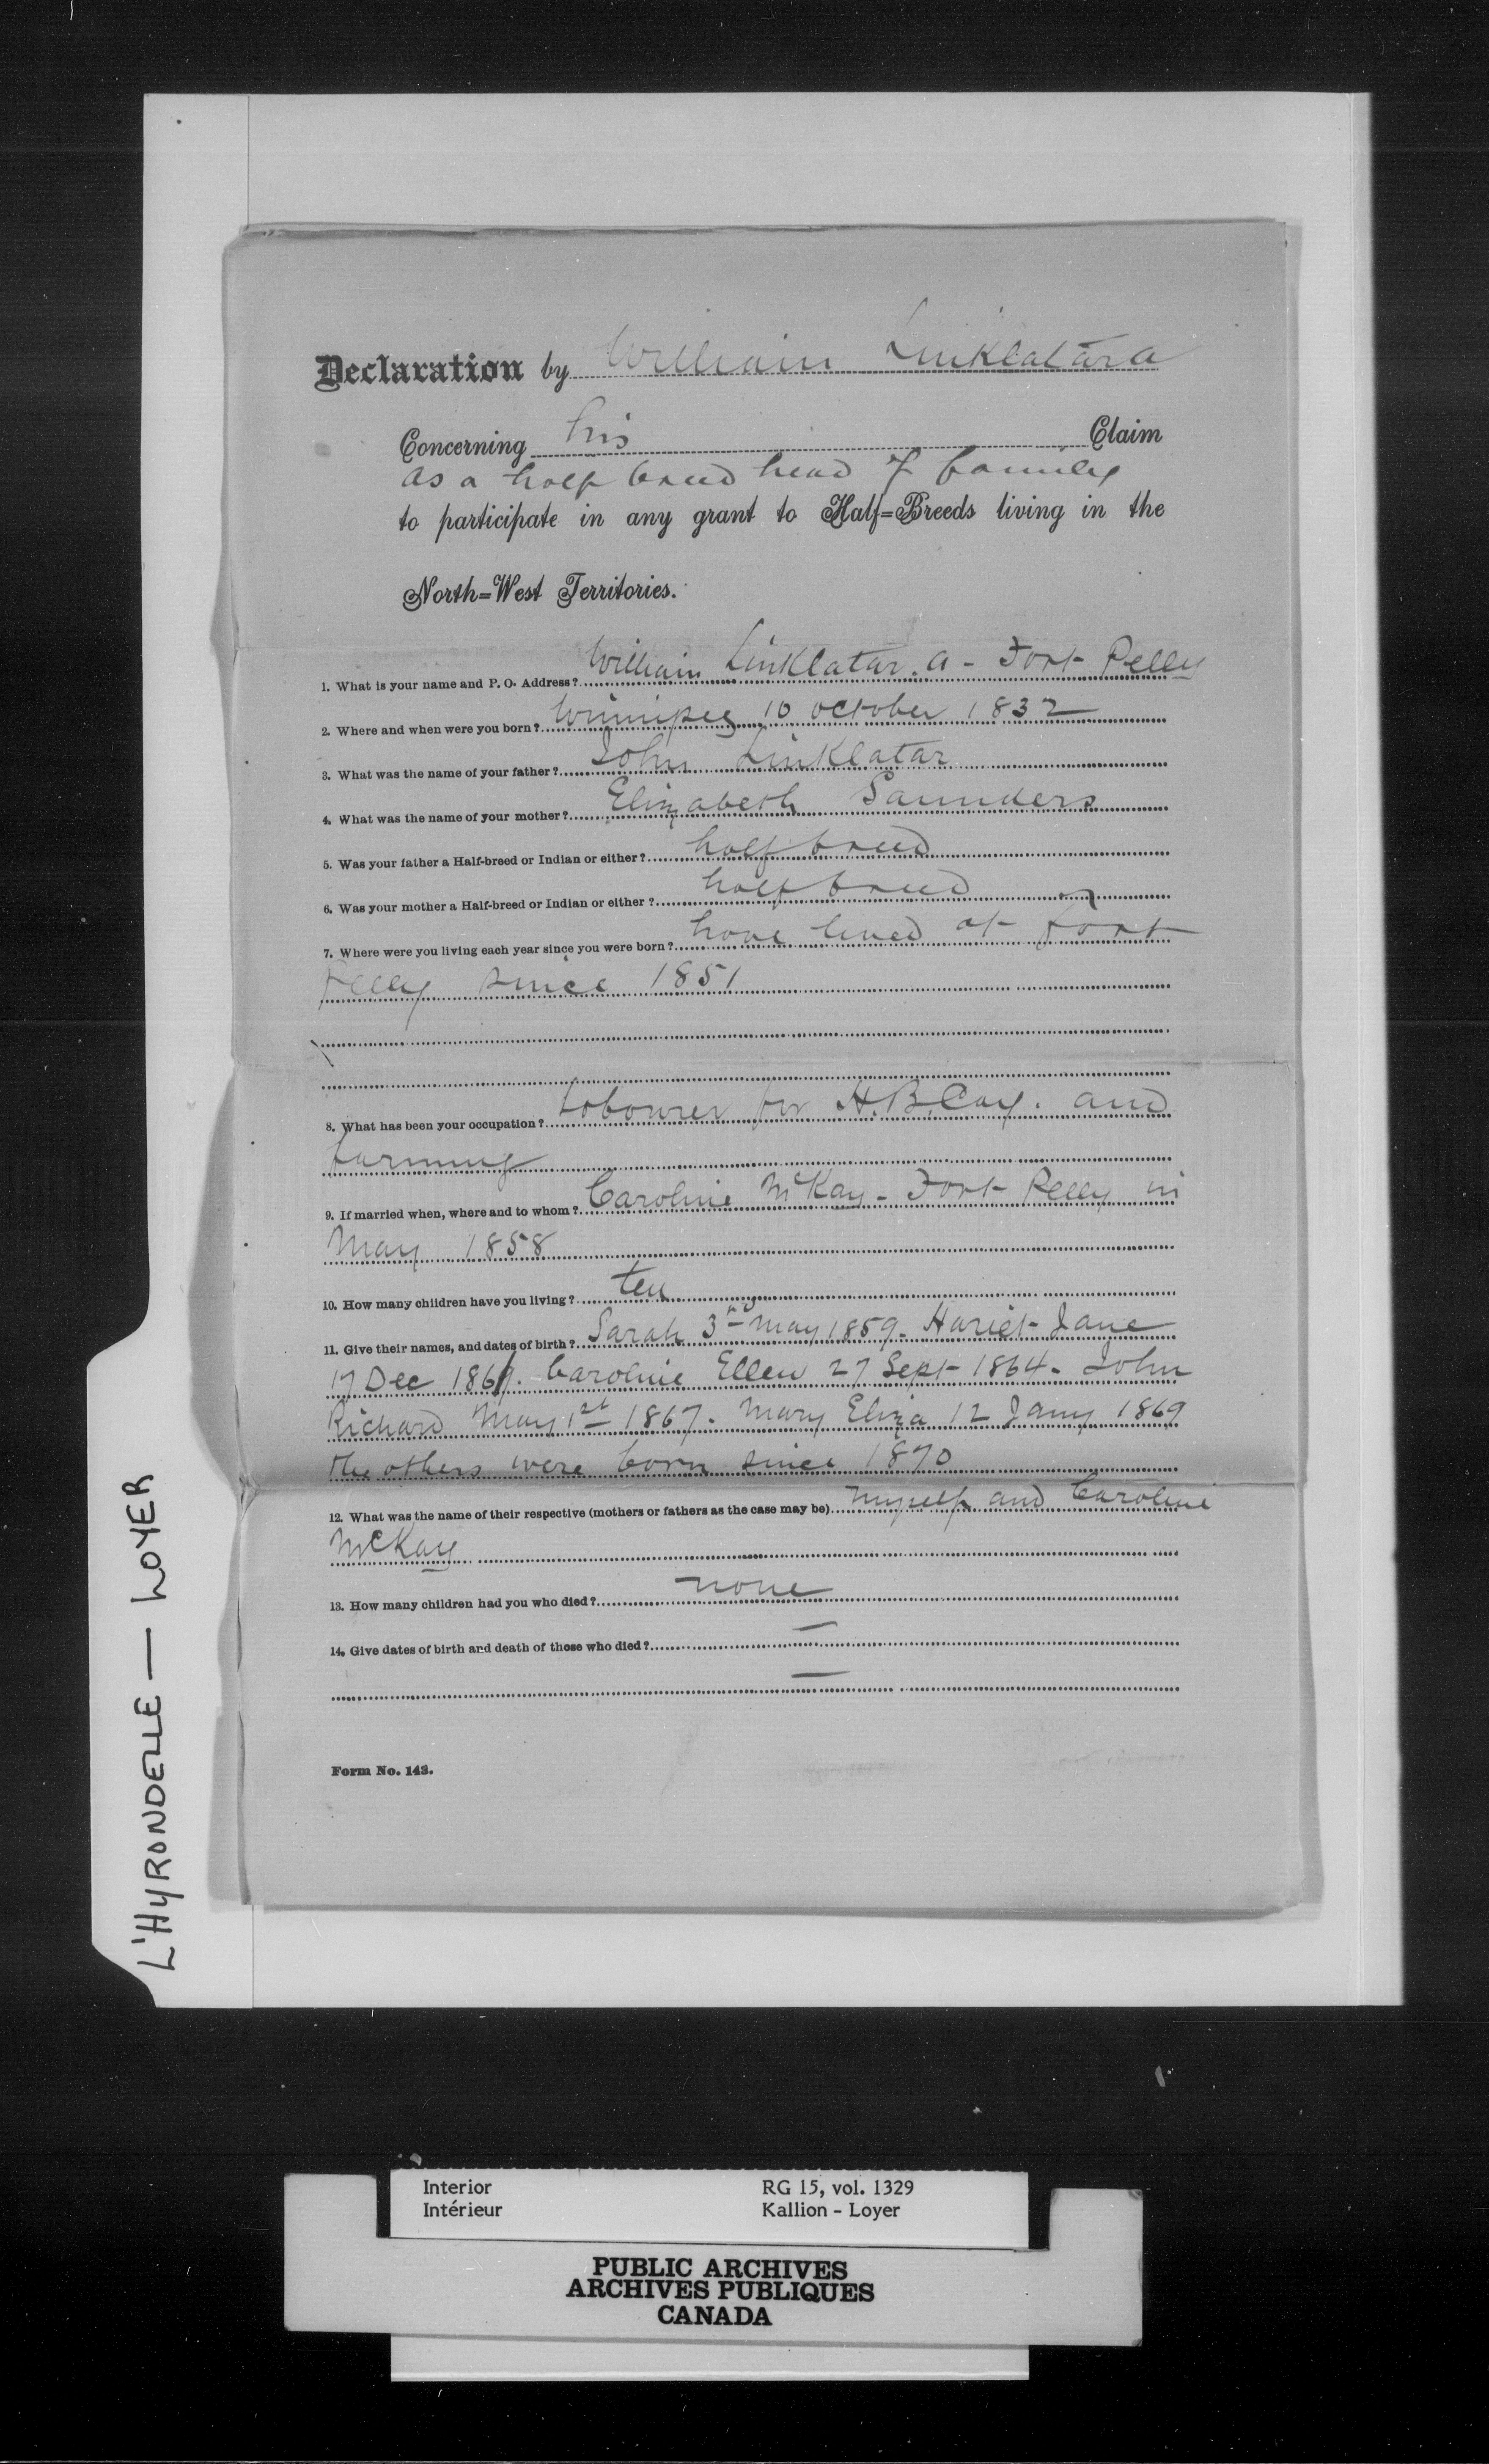 Declaration by William Linklatar a
Concerning his Claim
as a half breed head of family
to participate in any grant to Half=Breeds living in the
North=West Territories.
1. What is your name and P. O. Address? William Linklatar. a - Fort Pelly
2. Where and when were you born? Winnipeg 10 October 1832
3. What was the name of your father? John Linklatar
4. What was the name of your mother? Elizabeth Saunders
5. Was your father a Half-breed or Indian or either? half breed
6. Was your mother a Half-breed or Indian or either? half breed
7. Where were you living each year since you were born? have lived at Fort
Pelly since 1851
8. What has been your occupation? Labourer for H.B.Coy. and
farming
9. If married when, where and to whom? Caroline McKay - Fort Pelly in
May 1858
10. How many children have you living? ten
11. Give their names, and dates of birth? Sarah 3rd May 1859. Hariet Jane
17 Dec 1861. Caroline Ellen 27 Sept 1864. John
Richard May 1st 1867. Mary Eliza 12 Jany 1869
the others were born since 1870
12. What was the name of their respective (mothers or fathers as the case may be) myself and Caroline
McKay
13. How many children had you who died? none
14. Give dates of birth and death of those who died? —
—
Form No. 143.
L'HYRONDELLE — LOYER
Interior RG 15, vol. 1329
Intérieur Kallion - Loyer
PUBLIC ARCHIVES
ARCHIVES PUBLIQUES
CANADA